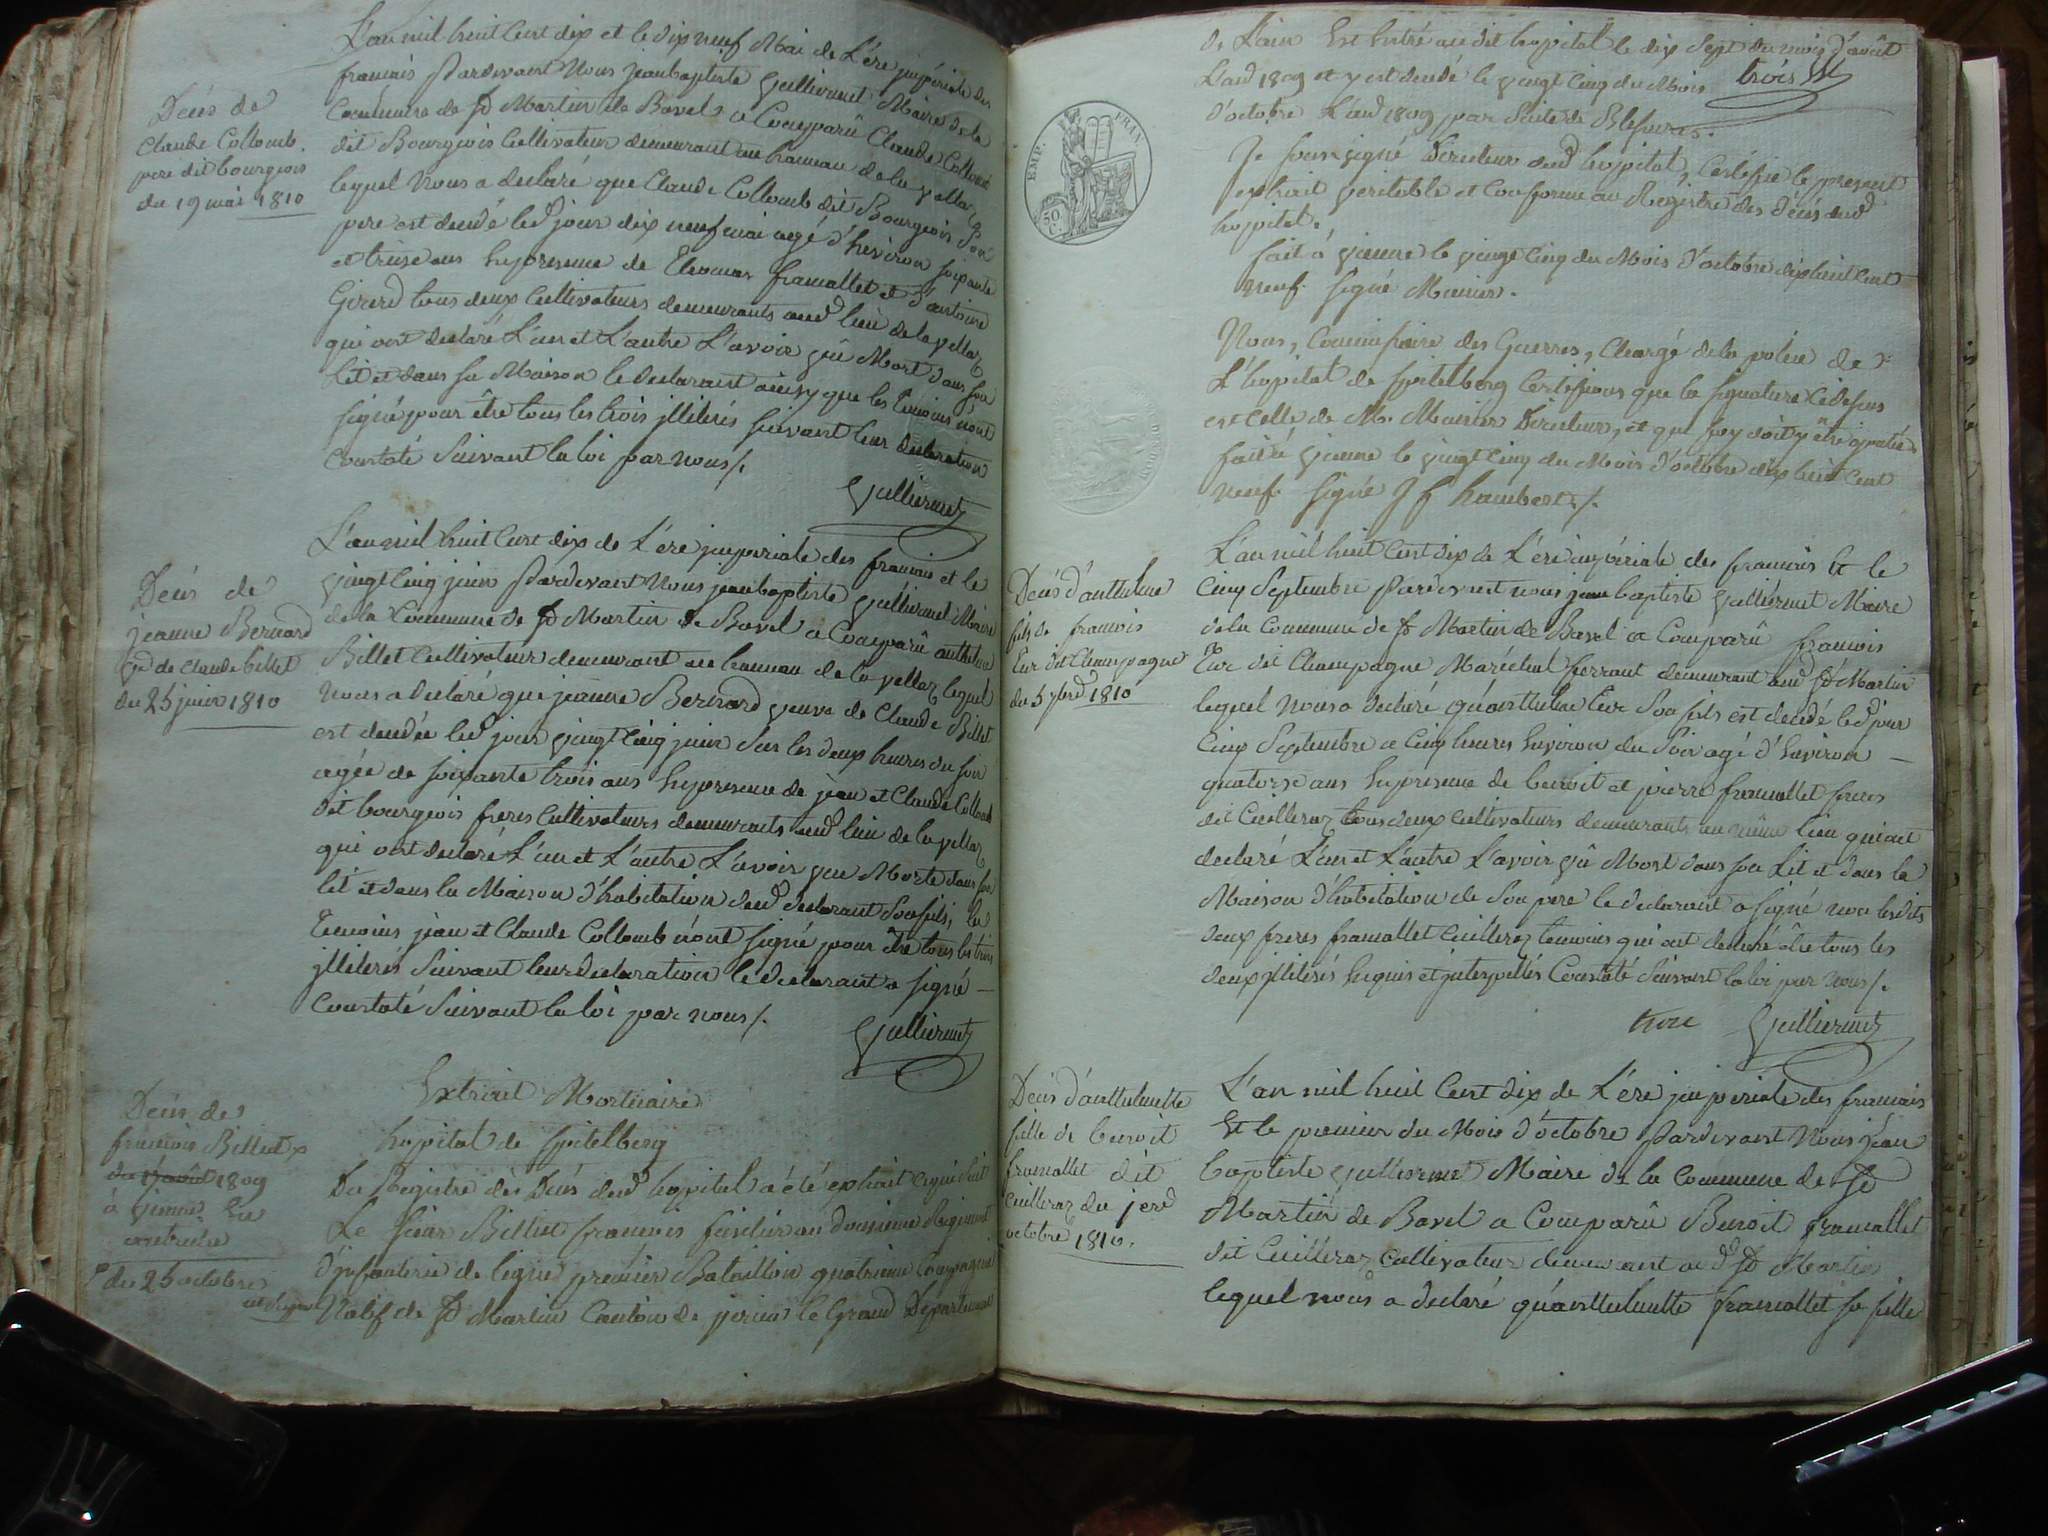 L'an mil huit Cent dix et le dix neuf Mai de L'ére jmpériale des
francais Pardevant Nous jeanbaptiste Gulliermet Maire de la
Commune de St Martin de Bavel a Comparû Claude Collomb
dit Bourgeois Cultivateur demeurant au hameau de la vellaz
lequel Nous a declaré que Claude Collomb dit Bourgeois Son
pere est decedé led jour dix neuf mai agé d'heviron soixante
et treise ans henpresence de framallet et d'antoine
Girerd tous deux Cultivateurs demeurants aud lieu de la vellaz
qui ont declaré L'un et L'autre L'avoir vû Mort dans son
Lit et dans sa Maison le declarant ainsy que les temoins n'ont
signé pour être tous les trois jlliterés suivant leur declaration
Constaté Suivant la loi par nous /.
Gulliermet
Décés de
Claude Collomb
pere dit bourgeois
du 19 mai 1810
L'an mil huit Cent dix de L'ére jmperiale des francais et le
vingt Cinq juin Pardevant Nous jeanbaptiste Gulliermet Maire
de la Commune de St Martin de Bavel a Comparû anthelme
Billet Cultivateur demeurant au hameau de la vellaz lequel
Nous a declaré que jeanne Bernard veuve de Claude Billet
est decedée led jour vingt Cinq juin Sur les deux heures du soir
agée de soixante trois ans henpresence de jean et Claude Collomb
dit bourgeois freres Cultivateurs demeurants aud lieu de la vellaz
qui ont declaré L'un et L'autre L'avoir vue Morte dans son
lit et dans la Maison d'habitation dud declarant Son fils, les
Temoins jean et Claude Collomb n'ont signé pour être tous les trois
jlliterés Suivant leur declaration le declarant a signé —
Constaté Suivant la loi par nous /.
Gulliermet
Décés de
jeanne Bernard
vve de Claude billet
du 25 juin 1810
Extrait Mortuaire
hopital de Spitelberg
Du Registre des Décés dud hopital a été extrait ce qui suit
Le Sieur Billiet francois fusilier au Regiment
d'jnfanterie de ligne premier Bataillon quatrieme Compagnie
Natif de St Martin Canton de virieu le Grand Departement
Décés de
francois Billiet
du 17 août 1809
à vienne En
autriche
du 25 octobre
de L'ain Est Entré au dit hopital le dix Sept du mois d'août
L'and 1809 et y est decedé le vingt Cinq du Mois trois
d'octobre L'and 1809 par Suite de Blesures.
Je soussigné Directeur dud hopital, Certifie le present
extrait veritable et Conforme au Régistre des décés dud
hopital.
fait à vienne le vingt Cinq du Mois d'octobre dixhuit Cent
neuf. signé Munier.
Nous, Commissaire des Guerres, Chargé de la police de
L'hopital de Spitelberg Certifions que la signature Cidesus
est Celle de M. Munier Directeur, et que foy doit y être ajoutée
fait à vienne le vingt Cinq du Mois d'octobre dix huit Cent
neuf. signé J f hambert /.
EMP. FRAN.
50 C.
L'an mil huit Cent dix de L'ére impériale des francais Et le
Cinq Septembre Pardevant nous jean baptiste Gulliermet Maire
de la Commune de St Martin de Bavel a Comparû francois
Tur dit Champagne Maréchal ferrant demeurant aud St Martin
lequel Nous a declaré qu'anthelme Tur Son fils est decedé led jour
Cinq Septembre a Cinq heures heviron du Soir agé d'heviron —
quatorze ans henpresence de benoit et pierre framallet freres
dit Cuilleraz tous deux Cultivateurs demeurants au même lieu qui ont
declaré L'un et L'autre L'avoir vû Mort dans son Lit et dans la
Maison d'habitation de Son pere le declarant a signé non lesdits
deux freres framallet Cuilleraz temoins qui ont declaré être tous les
deux jlliterés Enquis et jnterpellés Constaté Suivant la loi par nous /.
Gulliermet
Décés d'anthelme
fils de francois
Tur dit Champagne
du 5 7bre 1810
L'an mil huit Cent dix de L'ére jmperiale des francais
Et le premier du Mois d'octobre Pardevant Nous jean
baptiste Gulliermet Maire de la Commune de St
Martin de Bavel a Comparû Benoit framallet
dit Cuilleraz Cultivateur demeurant aud St Martin
lequel nous a declaré qu'anthelmette framallet sa fille
Décés d'anthelmette
fille de benoit
framallet dit
Cuilleraz du 1er
octobre 1810.